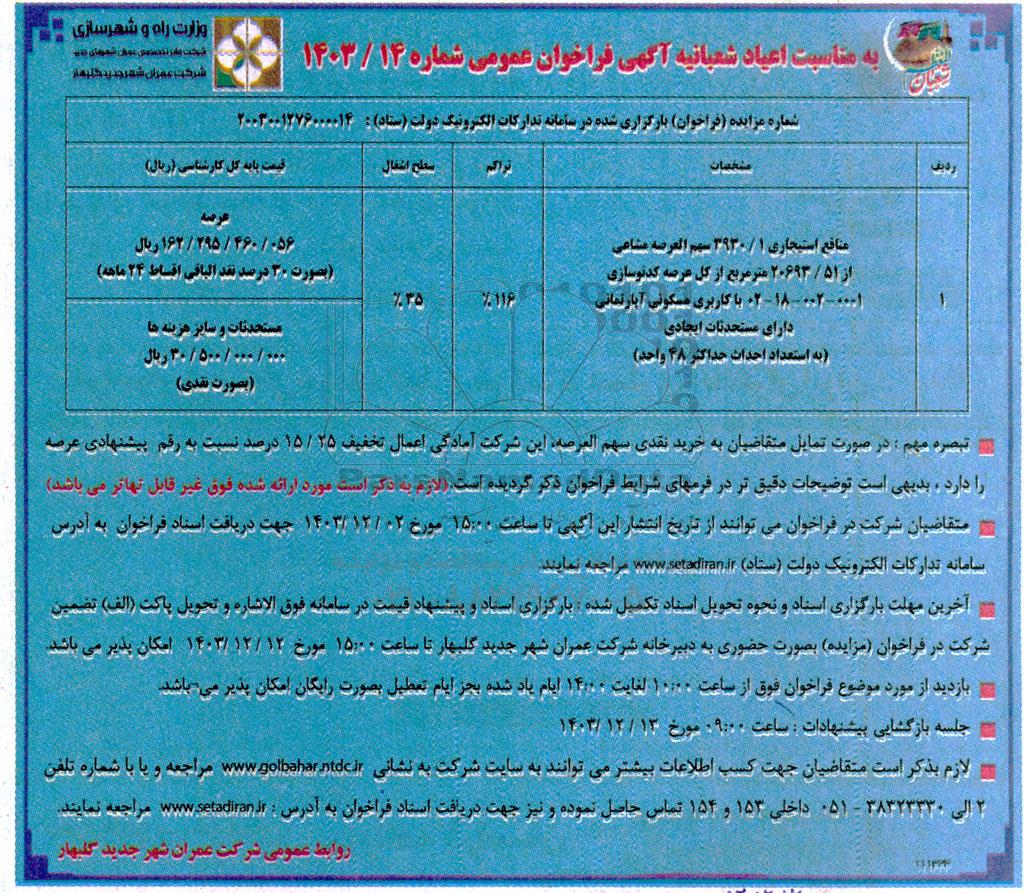 وزارت راه و شهرسازی
شرکت عمران شهر جدید گلبهار
به مناسبت اعیاد شعبانیه آگهی فراخوان عمومی شماره ۱۴ / ۱۴۰۳
شعبان
شماره مزایده (فراخوان) بارگزاری شده در سامانه تدارکات الکترونیک دولت (ستاد) : ۲۰۰۳۰۰۱۲۷۶۰۰۰۰۱۴
ردیف مشخصات تراکم سطح اشغال قیمت پایه کل کارشناسی (ریال)
۱
منافع استیجاری ۱ / ۳۹۳۰ سهم العرصه مشاعی
از ۵۱ / ۲۰۶۹۳ مترمربع از کل عرصه کدنوسازی
۰۰۰۱-۰۰۲-۱۸-۰۲ با کاربری مسکونی آپارتمانی
دارای مستحدثات ایجادی
(به استعداد احداث حداکثر ۴۸ واحد)
۱۱۶ ٪
۳۵ ٪
عرصه
۰۵۶ / ۴۶۰ / ۲۹۵ / ۱۶۲ ریال
(بصورت ۳۰ درصد نقد الباقی اقساط ۲۴ ماهه)
مستحدثات و سایر هزینه ها
۰۰۰ / ۰۰۰ / ۵۰۰ / ۳۰ ریال
(بصورت نقدی)
تبصره مهم : در صورت تمایل متقاضیان به خرید نقدی سهم العرصه، این شرکت آمادگی اعمال تخفیف ۲۵ / ۱۵ درصد نسبت به رقم پیشنهادی عرصه
را دارد ، بدیهی است توضیحات دقیق تر در فرمهای شرایط فراخوان ذکر گردیده است. (لازم به ذکر است مورد ارائه شده فوق غیر قابل تهاتر می باشد)
متقاضیان شرکت در فراخوان می توانند از تاریخ انتشار این آگهی تا ساعت ۱۵:۰۰ مورخ ۰۲ / ۱۲ /۱۴۰۳ جهت دریافت اسناد فراخوان به آدرس
سامانه تدارکات الکترونیک دولت (ستاد) www.setadiran.ir مراجعه نمایند.
آخرین مهلت بارگزاری اسناد و نحوه تحویل اسناد تکمیل شده : بارگزاری اسناد و پیشنهاد قیمت در سامانه فوق الاشاره و تحویل پاکت (الف) تضمین
شرکت در فراخوان (مزایده) بصورت حضوری به دبیرخانه شرکت عمران شهر جدید گلبهار تا ساعت ۱۵:۰۰ مورخ ۱۲ / ۱۲ /۱۴۰۳ امکان پذیر می باشد.
بازدید از مورد موضوع فراخوان فوق از ساعت ۱۰:۰۰ لغایت ۱۴:۰۰ ایام یاد شده بجز ایام تعطیل بصورت رایگان امکان پذیر می-باشد.
جلسه بازگشایی پیشنهادات : ساعت ۰۹:۰۰ مورخ ۱۳ / ۱۲ /۱۴۰۳
لازم بذکر است متقاضیان جهت کسب اطلاعات بیشتر می توانند به سایت شرکت به نشانی www.golbahar.ntdc.ir مراجعه و یا با شماره تلفن
۲ الی ۳۸۳۲۳۳۳۰ - ۰۵۱ داخلی ۱۵۳ و ۱۵۴ تماس حاصل نموده و نیز جهت دریافت اسناد فراخوان به آدرس : www.setadiran.ir مراجعه نمایند.
روابط عمومی شرکت عمران شهر جدید گلبهار